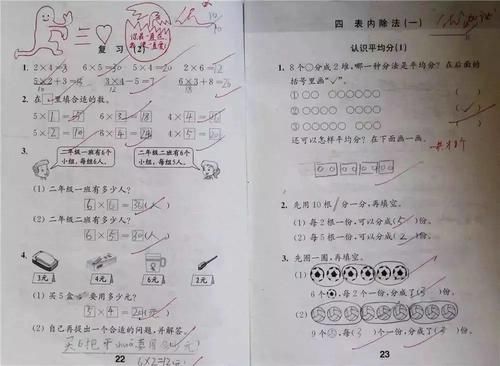 复 习 (2)
1. 2×4=8 6×5=30 5×4=20 3×6=18
5×2+3=13 3×4-5=7 6×3+8=26
10 12 18
2. 在□里填合适的数。
5×1=5 6×3=18 4×4=16
5×2=10 6×4=24 4×5=20
3.
二年级一班有6个小组，每组6人。
二年级二班有6个小组，每组5人。
(1) 二年级一班有多少人？
6×6=36(人)
(2) 二年级二班有多少人？
6×5=30(人)
4.
3元 4元 6元 2元
(1) 买5盒 要用多少元？
5 4=20(元)
(2) 自己再提出一个合适的问题，并解答。
买6把牙shuā要用 元
6×2=12(元)
22
四 表内除法(一)
认识平均分(1)
1. 8个○分成2堆，哪一种分法是平均分？在后面的
括号里画“✓”。
① ( )
② (✓)
③ ( )
还可以怎样平均分？在下面画一画。
2. 先用10根/分一分，再填空。
(1) 每2根一份，可以分成(5)份。
(2) 每5根一份，可以分成(2)份。
3. 先圈一圈，再填空。
(1)
6个，每2个一份，分成了(3)份。
(2)
9个，每(3)个一份，分成了(3)份。
23